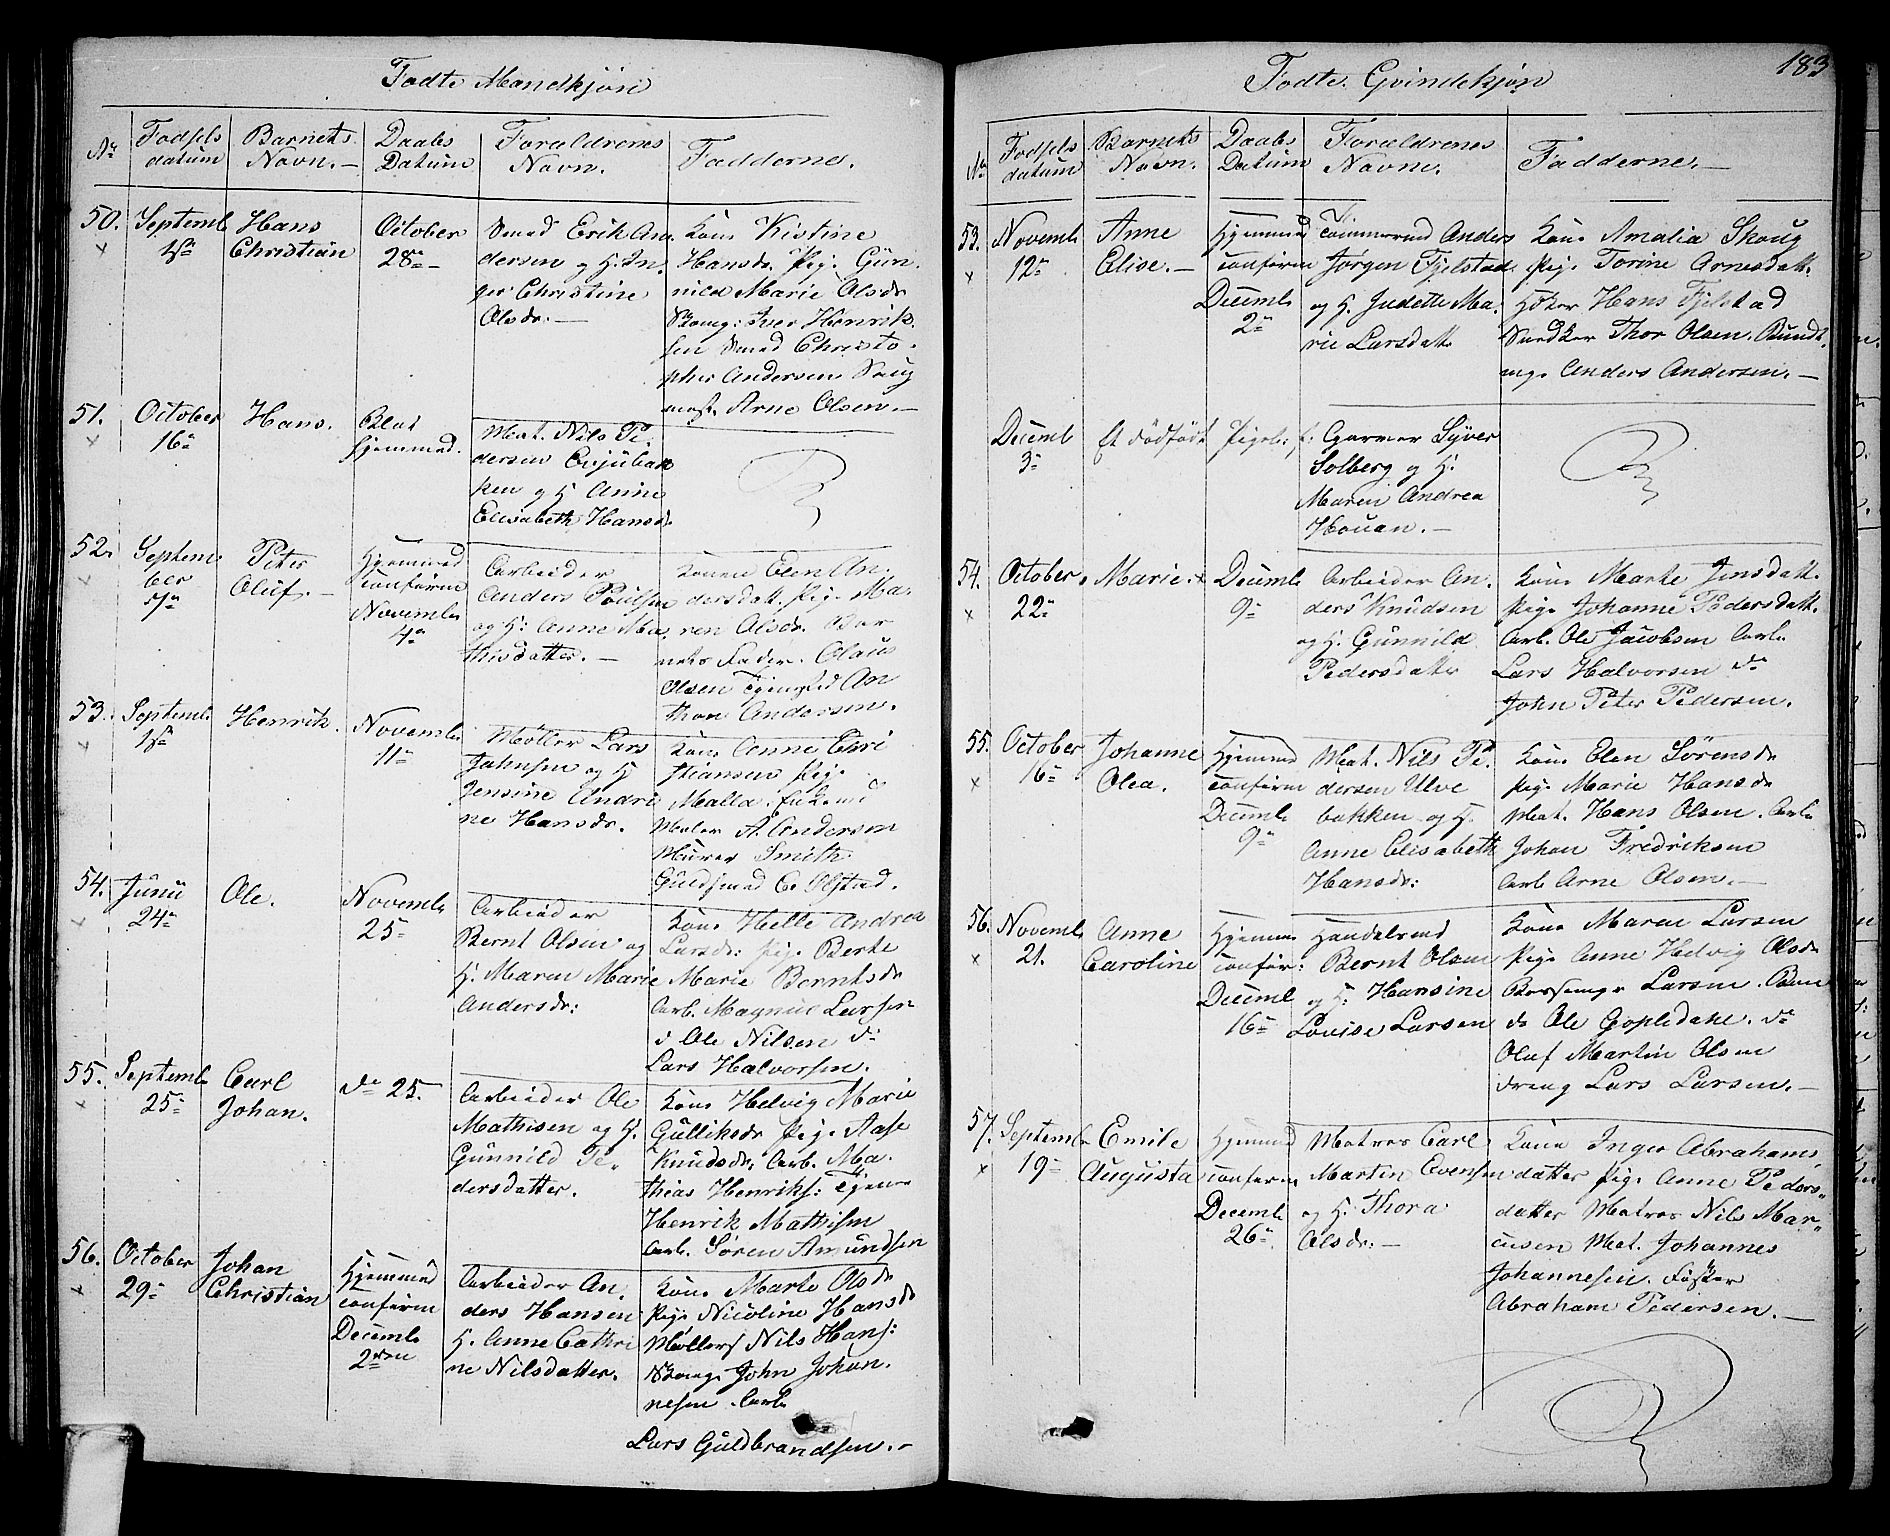 Fødte Mandkjøn
No
Fødsels datum
Barnets Navn.
Daabs Datum
Forældrenes Navn.
Fadderne.
50.
Septembr
Hans
Christian
October
28de
Smed Erik An-
dersen og H: In-
ger Christine
Olsdr.
Kone Kistine
Hansdr. Pige Gun-
nild Marie Olsdr
Iver Henrik-
sen Smed Christo-
pher Andersen
Arne Olsen.
51.
October
16de
Hans.
hjemmed.
Mat. Nils Pe-
dersen
og H. Anne
Elisabeth Hansdr.
52.
Septem-
ber
Peter
Oluf.
Hjemmed
confirm
Novembr
4de
Arbeider
Anders Poulsen
og H: Anne Ma-
thisdatter.
Konen Elen An-
dersdatt. Pige Ma-
ren Olsdr. Bar
nets Fader. Olaus
Olsen An
thon Andersen.
53.
Septembr
Henrik.
Novembr
11te
Møller Lars
Johnsen og H
Jensine Andri
ne Hansdr.
Kone Anne Chri
stiansen Pige
Malla
Maler A. Andersen
Murer Smith
Guldsmed C. Olstad.
54.
Junii
24de
Ole.
Novembr
25de
Arbeider
Bernt Olsen og
H. Maren Marie
Andersdr:
Kone Helle Andrea
Larsdr: Pige Berte
Marie Berntsdr
Arb. Magnus Larsen
d Ole Nilsen do
Lars Halvorsen.
55.
Septembr
25de
Carl
Johan.
do 25.
Arbeider Ole
Mathisen og H.
Gunnild Pe-
dersdatter.
Kone Helvig Marie
Gulliksdr Pige Aase
Knudsdr: Arb. Ma-
thias Henriks: Tjen
Henrik Mathisen
Arb. Søren Amundsen
56.
October
29de
Johan
Christian
Hjemmed
confirm
Decembr
2den
Arbeider An-
ders Hansen
H. Anne Cathri
ne Nilsdatter.
Kone Marte Olsdr
Pige Nicoline Hansdr
Møllers Nils Hans:
John Johan-
nesen Arb
Lars Guldbrandsen.
183
Fødte Qvindekjøn
No
Fødsels datum
Barnets Navn.
Daabs Datum
Forældrenes Navne.
Fadderne.
53.
Novembr
12te
Anne
Elise.
Hjemmed
confirm
Decembr
2den
Tømmermd Anders
Jørgen Fjelstad
og H. Judette Ma-
rie Larsdatt
Kone Amalia Skoug
Pige Torine Arnesdatt.
Høker Hans Fjelstad
Snedker Thor Olsen.
Anders Andersen.
Decembr
3de
Et dødfødt Pigeb:
Garver Syver
Solberg og H.
Maren Andrea
Houan.
54.
October
22de
Marie.
Decembr
9de
Arbeider An-
ders Knudsen
og H. Gunnild
Pedersdatt
Kone Marte Jensdatt.
Pige Johanne Pedersdatt.
Arb. Ole Jacobsen Arb.
Lars Halvorsen do
John Peter Pedersen.
55.
October
16de
Johanne
Olea.
Hjemmed
confirm
Decembr
9de
Mat. Nils Pe-
dersen Ulve
bakken og H.
Anne Elisabeth
Hansdr:
Kone Elen Sørensdr
Pige Marie Hansdr
Mat. Hans Olsen. Arb
Johan Fredriksen
Arb Arne Olsen.
56.
Novembr
21.
Anne
Caroline
Hjemme
confir:
Decembr
16de
Handelsmd
Bernt Olsen
og H: Hansine
Louise Larsen
Kone Maren Larsen
Pige Anne Helvig Olsdr
Larsen.
Ole do
Oluf Martin Olsen
dreng Lars Larsen.
57.
Septembr
19de
Emile
Augusta
Hjemmed
confirm
Decembr
26de
Matros Carl
Martin Evensen
og H. Thora
Olsdr:
Kone Inger Abrahams
datter Pige Anne Peders-
datter Matros Nils Mar-
cusen Mat. Johannes
Johannesen. Fisker
Abraham Pedersen.